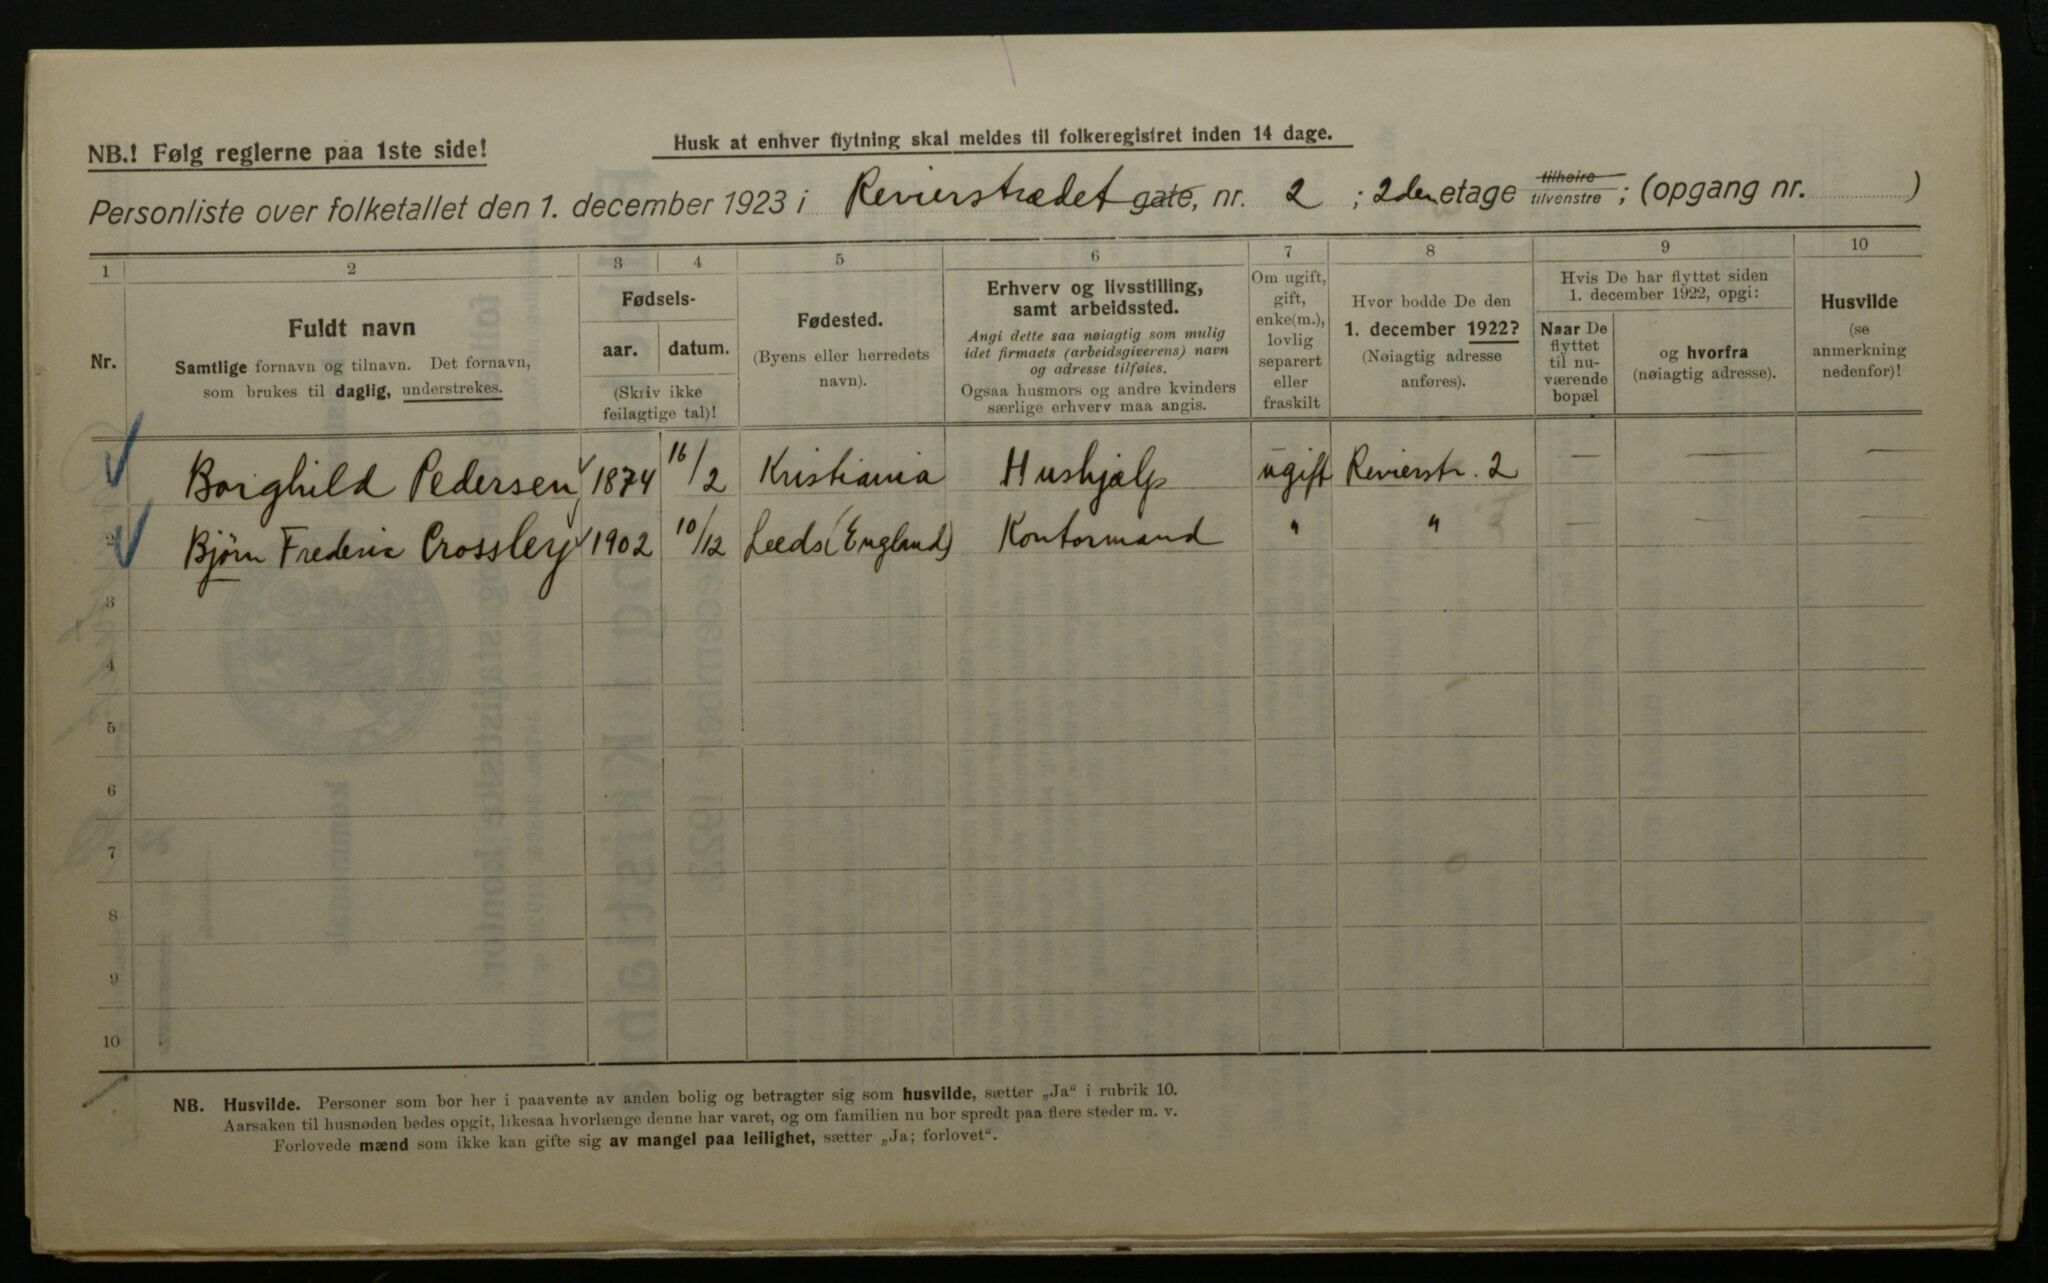 NB.! Følg reglerne paa 1ste side!
Husk at enhver flytning skal meldes til folkeregistret inden 14 dage.
Personliste over folketallet den 1. december 1923 i Revierstrædet gate, nr. 2 ; 2den etage tilhøire tilvenstre ; (opgang nr. )
1 2 3 4 5 6 7 8 9 10
Nr.
Fuldt navn
Samtlige fornavn og tilnavn. Det fornavn,
som brukes til daglig, understrekes.
Fødsels-
aar. datum.
(Skriv ikke
feilagtige tal)!
Fødested.
(Byens eller herredets
navn).
Erhverv og livsstilling,
samt arbeidssted.
Angi dette saa nøiagtig som mulig
idet firmaets (arbeidsgiverens) navn
og adresse tilføies.
Ogsaa husmors og andre kvinders
særlige erhverv maa angis.
Om ugift,
gift,
enke(m.),
lovlig
separert
eller
fraskilt
Hvor bodde De den
1. december 1922?
(Nøiagtig adresse
anføres).
Hvis De har flyttet siden
1. december 1922, opgi:
Naar De
flyttet
til nu-
værende
bopæl
og hvorfra
(nøiagtig adresse).
Husvilde
(se
anmerkning
nedenfor)!
Borghild Pedersen 1874 16/2 Kristiania Hushjælp ugift Revierstr. 2 — — —
2 Bjørn Frederic Crossley 1902 10/12 Leeds (England) Kontormand " " — — —
3
4
5
6
7
8
9
10
NB. Husvilde. Personer som bor her i paavente av anden bolig og betragter sig som husvilde, sætter „Ja“ i rubrik 10.
Aarsaken til husnøden bedes opgit, likesaa hvorlænge denne har varet, og om familien nu bor spredt paa flere steder m. v.
Forlovede mænd som ikke kan gifte sig av mangel paa leilighet, sætter „Ja; forlovet“.